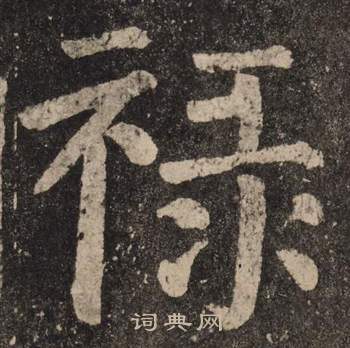 禄
词典网